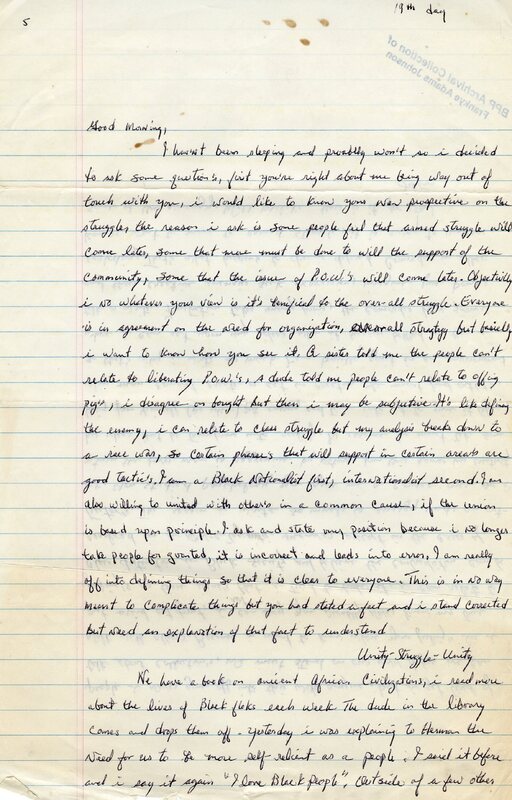 19th day
5
BPP Archival Collection of
Frankye Adams Johnson
Good Morning,
I haven't been sleeping and probably won't so i decided
to ask some question's, first you're right about me being way out of
touch with you, i would like to know your own prospective on the
struggle, the reason i ask is some people feel that armed struggle will
come later, some that more must be done to will the support of the
community, some that the issue of P.O.W.'s will come later. Objectively
i no whatever your view is it's to the over-all struggle. Everyone
is in agreement on the need for organization, overall but basically
i want to know how you see it. A sister told me the people can't
relate to liberating P.O.W.'s, a dude told me people can't relate to offing
pig's, i disagree on but then i may be subjective. It's like defining
the enemy, i can relate to class struggle but my analysis breaks down to
a race war, so certain phrase's that will support in certain area's are
good tactic's. I am a Black Nationalist first, internationalist second. I am
also willing to united with other's in a common cause, if the union
is based upon principle. I ask and state my position because i no longer
take people for granted, it is incorrect and leads into error. I am really
off into defining things so that it is clear to everyone. This is in no way
meant to complicate things but you had stated a fact and i stand corrected
but need an explanation of that fact to understand
Unity-Struggle-Unity
We have a book on ancient African Civilizations, i read more
about the lives of Black folks each week. The dude in the library
comes and drops them off. Yesterday i was explaining to Herman the
need for us to be more self-reliant as a people. I said it before
and i say it again "I love Black People". Outside of a few other